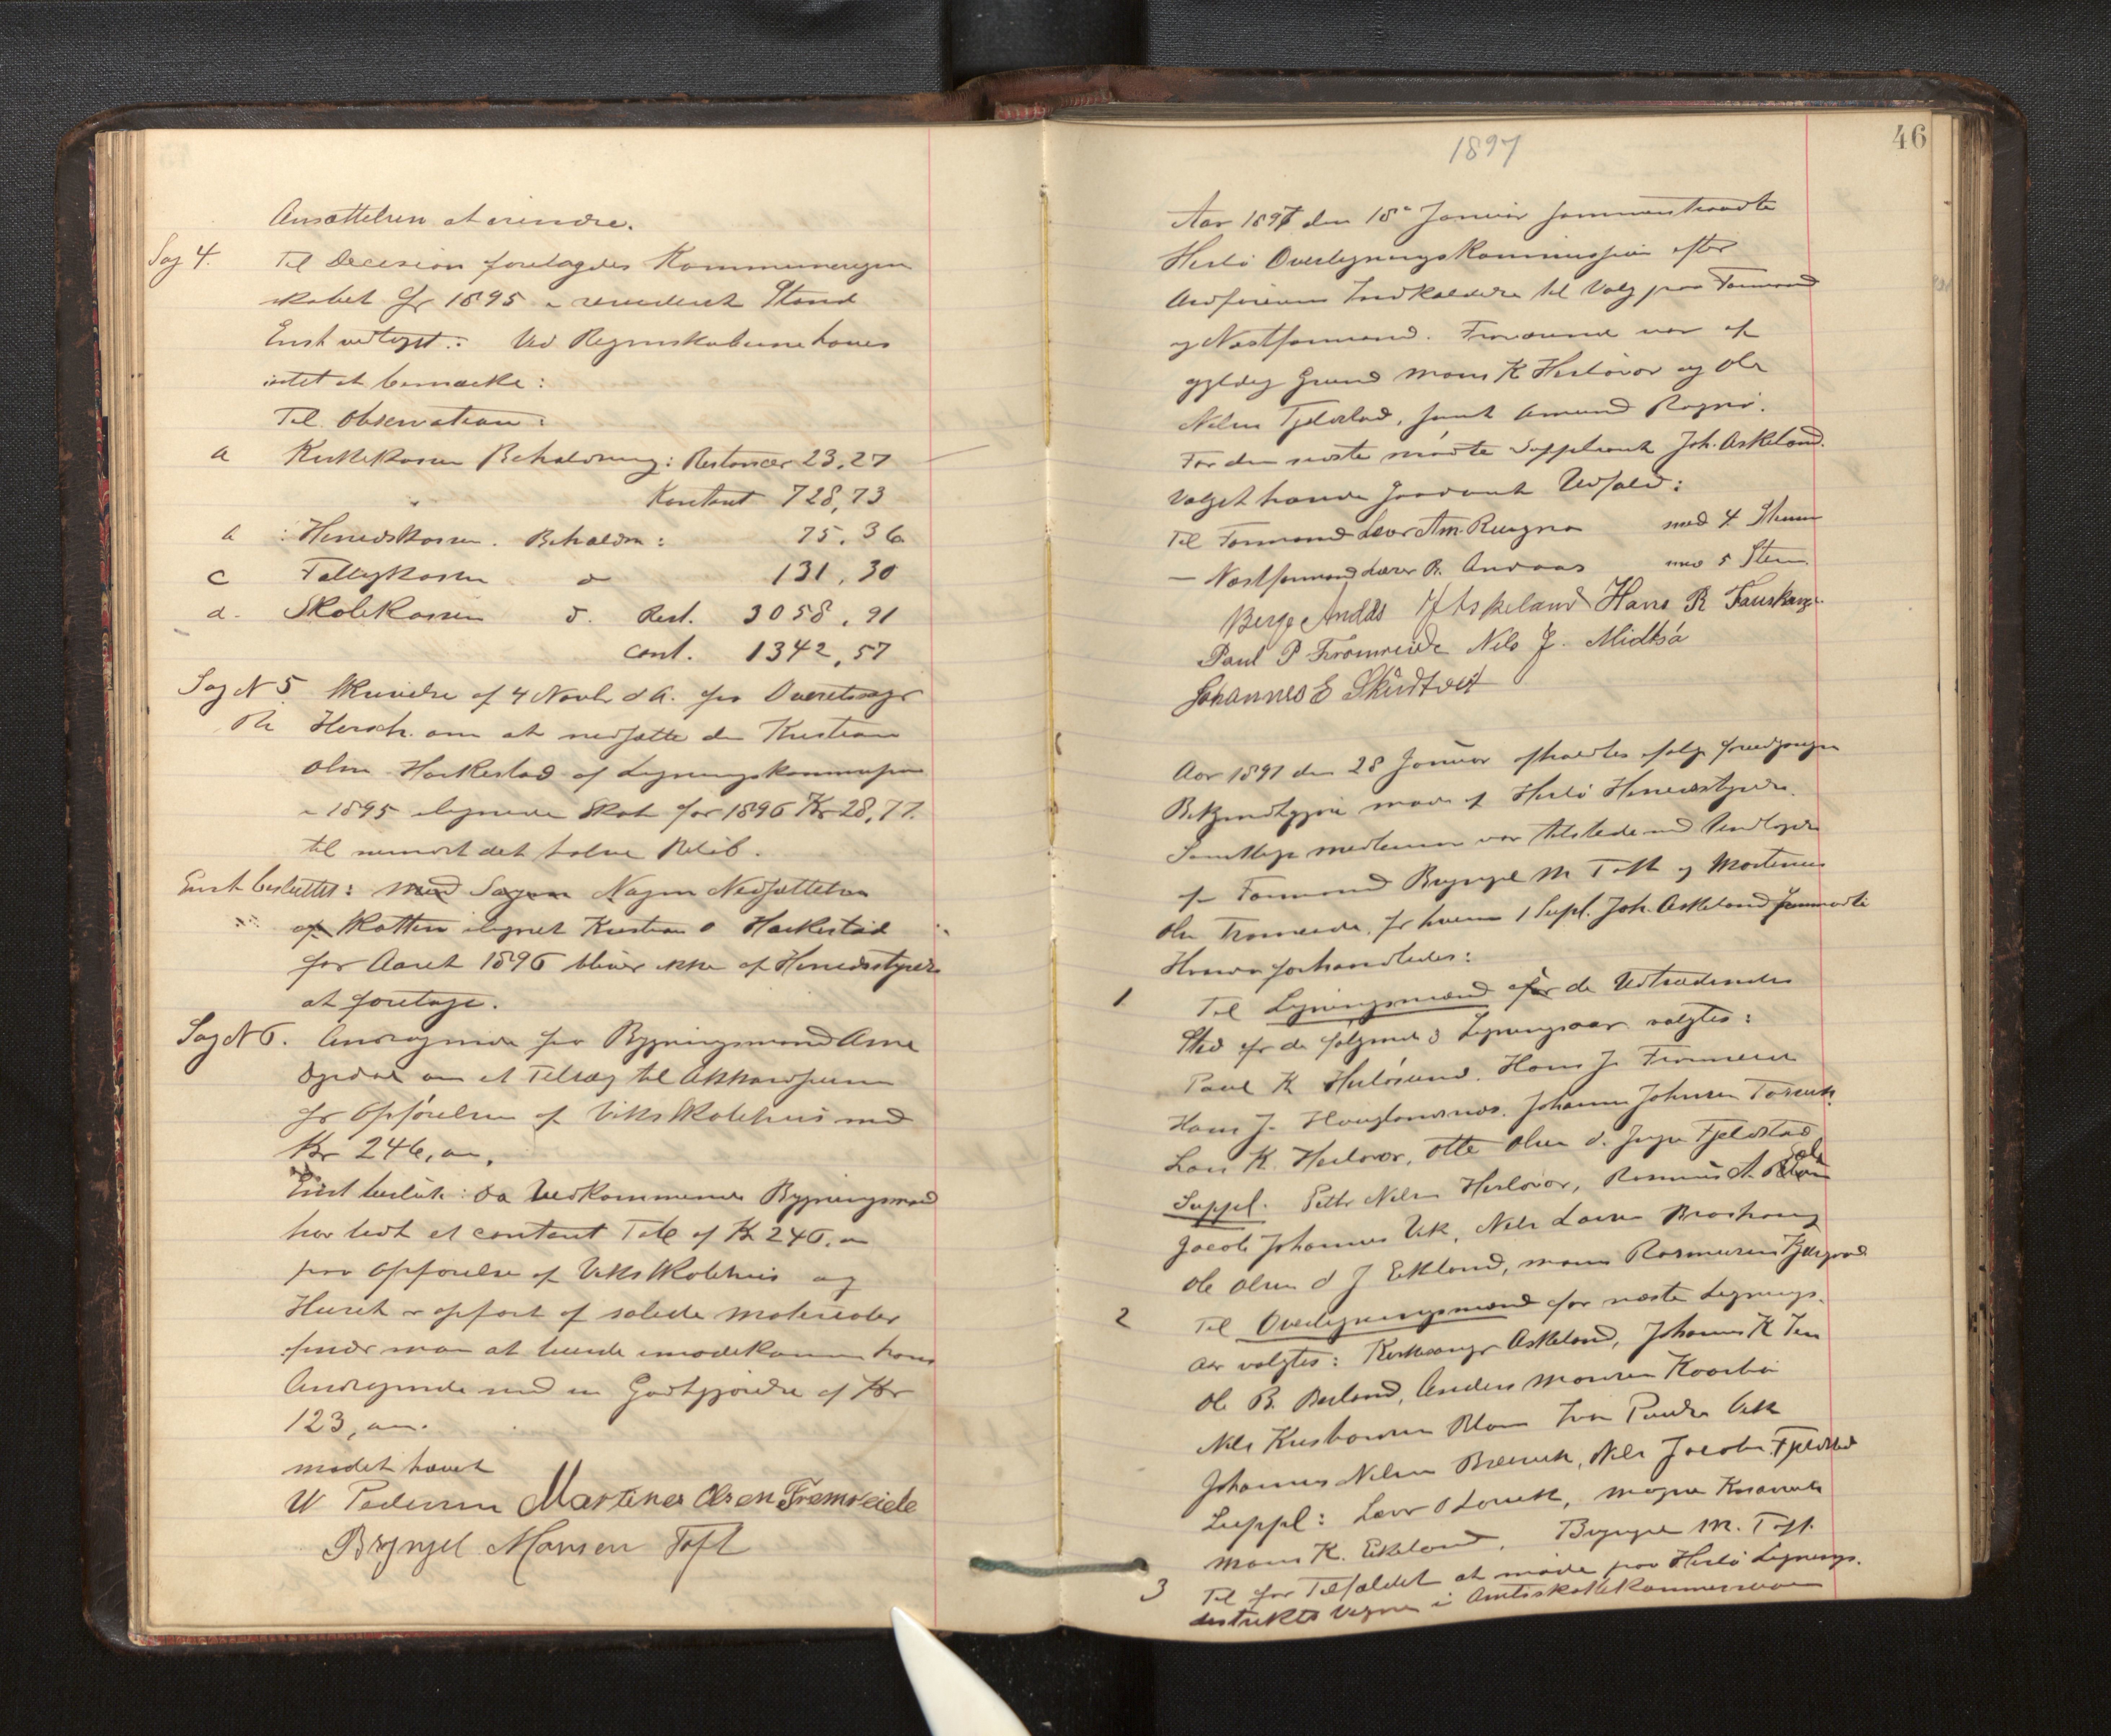 Ansættelsen at erindre.
Sag 4. Til Decision foretoges Kommuneregn
skabet for 1895 i revideret Stand
Enst vedtoges: Ved Regnskaberne haves
intet at bemærke:
Til Observation:
a Kirkekassen Beholdning: Restancer 23,27
" Kontant 728,73
b : Herredskassen. Beholdn: 75,36
c Fattigkassen do 131,30
d. Skolekassen d. Rest. 3058,91
Cont. 1342,57
Sag N 5. Skrivelse af 4 Novb. d A. fra Overretssagf
Hersch. om at nedsætte den Kristian
Olsen Haakestad af Ligningskommissionen
i 1895 ilignede Skat for 1896 Kr 28,77.
til mindst det halve Beløb.
Enst besluttet: Nogen Nedsættelse
af Skatten ilignet Kristian O Haakestad
for Aaret 1896 bliver ikke af Herredsstyret
at foretage.
Sag N 6. Andragende fra Bygningsmand Arne
om et Tillæg til Akkordsummen
for Opførelsen af Viks Skolehus med
Kr 246,00.
Enst beslut: Da Vedkommende Bygningsmand
har lidt et contant Tab af Kr 246,00
paa Opførelse af Viks Skolehus og
Huset er opført af solide Materialer
finder man at burde imødekomme hans
Andragende med en Godtgjørelse af Kr
123,00.
Mødet hævet
W Pedersen Martines Olsen Fromreide
Brynjel Monsen Toft
46
1897
Aar 1897 den 18de Januar sammentraadte
Herlø Overligningskommission efter
Ordførerens Indkaldelse til Valg paa Formand
og Næstformand. Fraværende var af
gyldig Grund Mons K Herløvær og Ole
Nilsen Fjeldstad, samt Amund Rognø.
For den sidste mødte Suppleant Joh. Askeland.
Valget havde saadant Udfald:
Til Formand Am. Rongnø med 4 Stemmer
— Næstformand Lærer B. Andaas med 5 Stem.
Berge Andås Askeland Hans R Fauskange
Paul P Fromreide Nils J. Midtsø
Johannes E Skudtveit
Aar 1897 den 28 Januar afholdtes ifølge foregaaende
Bekjendtgjørelse møde af Herlø Herredsstyre.
Samtlige medlemmer var tilstede med Undtagelse
af Formand Brynjel M. Toft og Martinus
Olsen Fromreide, for hvem 1 Supl. Joh. Askeland fremmødte
Herren forhandledes:
1. Til Ligningsmænd for de Udtrædendes
Sted for de følgende 3 Ligningsaar valgtes:
Paul K Herløsund. Hans J. Fromreide
Hans J. Hauglandsnes. Johannes Johnsen
Lars K. Herløvær, Otte Olsen d. Fjeldstad
Suppl. Petter Nilsen Herløvær, Rasmus A.
Jacob Johannes Vik, Nils Larsen
Ole Olsen d J Eikland, Mons Rasmussen
2 Til Overligningsmænd for næste Lignings-
aar valgtes: Kirkesanger Askeland, Johannes K
Ole B. Berland, Anders Monsen
Nils Kristiansen Blom Iver Vik
Johannes Nilsen, Nils Jacobs. Fjeldstad
Suppl: Lars O, Magne
Mons K. Eikeland, Brynjel M. Toft.
3 Til for Tilfældet at møde paa Herlø Lignings-
distrikts Vegne i Amtsskattekommissionen